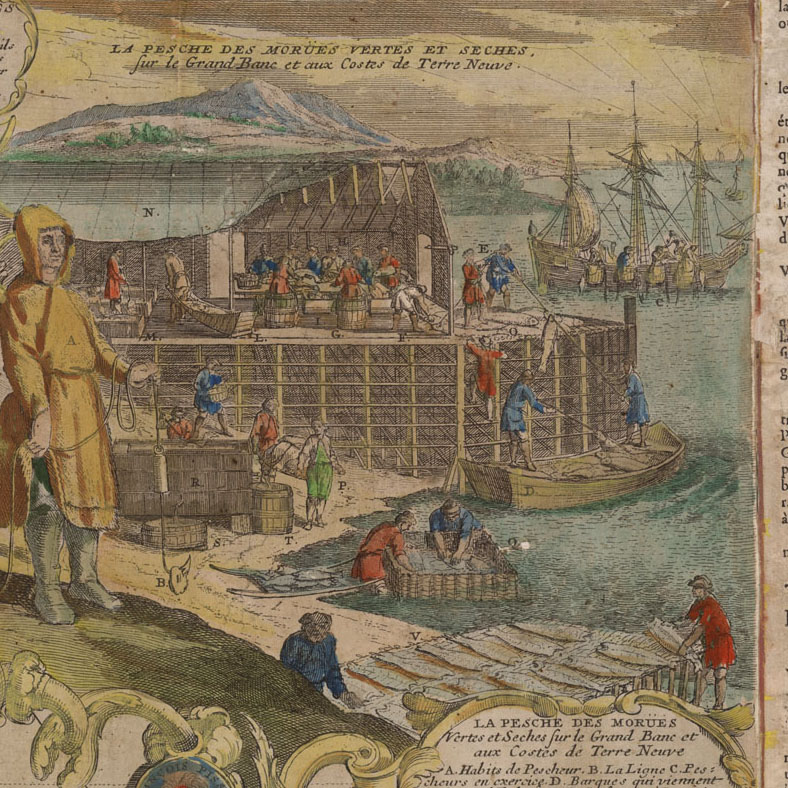 LA PESCHE DES MORÜES VERTES ET SECHES,
sur le Grand Banc et aux Costes de Terre Neuve.
N.
H
E
A
C
M.
L.
G
F.
O
D
R
P.
S.
T
Q
B
V
LA PESCHE DES MORÜES
Vertes et Seches sur le Grand Banc et
aux Costes de Terre Neuve
A. Habits de Pescheur. B. La Ligne C. Pes=
cheurs en exercice. D. Barques qui viennent